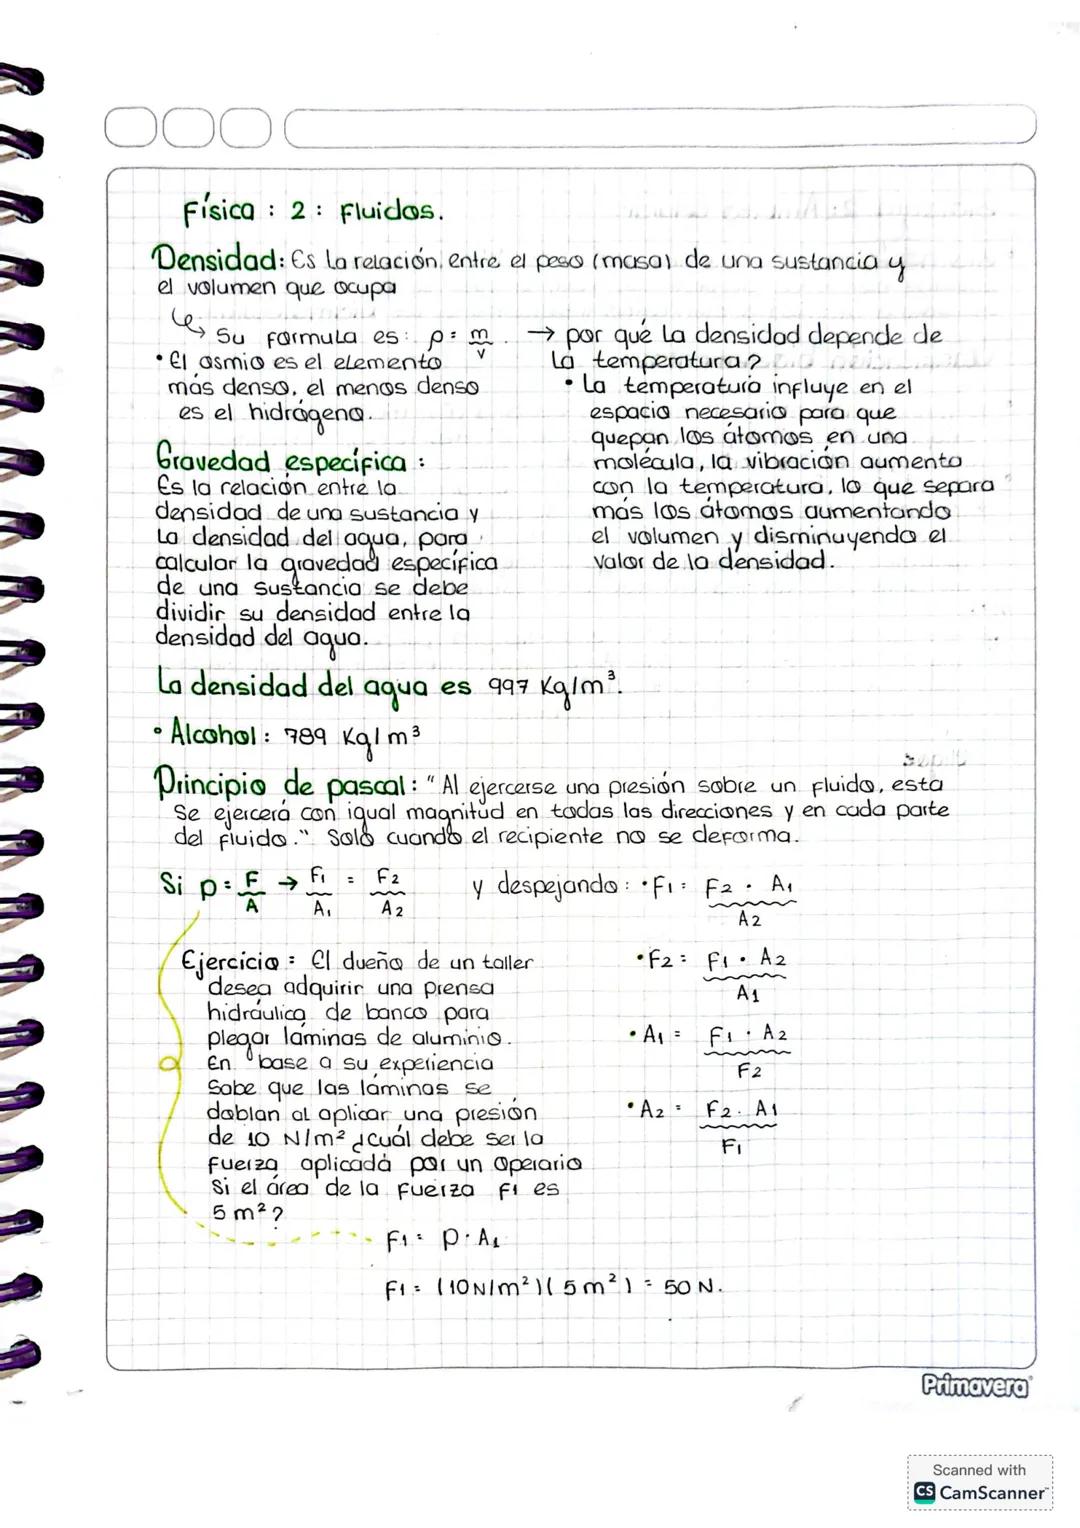 Física : 2 : Fluidos.
Densidad: Es la relación entre el peso (masa) de una sustancia y
el volumen que ocupa
↳ Su formula es: ρ = m/v
• El osmio es el elemento
más denso, el menos denso
es el hidrógeno.
→ por qué la densidad depende de
la temperatura?
• La temperatura influye en el
espacio necesario para que
quepan los átomos en una
molécula, la vibración aumenta
con la temperatura, lo que separa
más los átomos aumentando
el volumen y disminuyendo el
valor de la densidad.
Gravedad específica :
Es la relación entre la
densidad de una sustancia y
La densidad del agua, para
calcular la gravedad específica
de una sustancia se debe
dividir su densidad entre la
densidad del agua.
La densidad del agua es 997 Kg/m³.
• Alcohol : 789 Kg/m³
Principio de pascal : "Al ejercerse una presión sobre un fluido, esta
Se ejercerá con igual magnitud en todas las direcciones y en cada parte
del fluido." Solo cuando el recipiente no se deforma.
Si p = F/A → F1/A1 = F2/A2 y despejando : • F1 = F2 . A1/A2
• F2 = F1 . A2/A1
• A1 = F1 . A2/F2
• A2 = F2 . A1/F1
Ejercicio : El dueño de un taller
desea adquirir una prensa
hidráulica de banco para
plegar láminas de aluminio.
En base a su experiencia
Sabe que las láminas se
doblan al aplicar una presión
de 10 N/m² ¿cuál debe ser la
fuerza aplicada por un operario
Si el área de la fuerza F1 es
5 m²?
F1 = p . A1
F1 = (10 N/m²)(5 m²) = 50 N.
Primavera
Scanned with
CS CamScanner